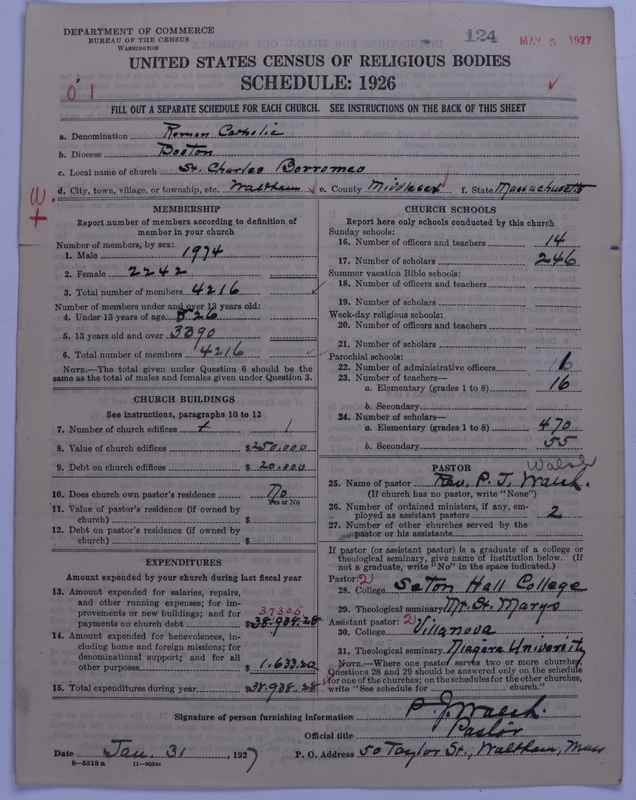 DEPARTMENT OF COMMERCE
BUREAU OF THE CENSUS
WASHINGTON
124
MAY 5 1927
UNITED STATES CENSUS OF RELIGIOUS BODIES
SCHEDULE: 1926
01
FILL OUT A SEPARATE SCHEDULE FOR EACH CHURCH. SEE INSTRUCTIONS ON THE BACK OF THIS SHEET
a. Denomination Roman Catholic
b. Diocese Boston
c. Local name of church St. Charles Borromeo
d. City, town, village, or township, etc. Waltham e. County Middlesex f. State Massachusetts
MEMBERSHIP
Report number of members according to definition of
member in your church
Number of members, by sex:
1. Male 1974
2. Female 2242
3. Total number of members 4216
Number of members under and over 13 years old:
4. Under 13 years of age 826
5. 13 years old and over 3390
6. Total number of members 4216
NOTE.—The total given under Question 6 should be the
same as the total of males and females given under Question 3.
CHURCH BUILDINGS
See instructions, paragraphs 10 to 12
7. Number of church edifices 1
8. Value of church edifices $250,000
9. Debt on church edifices $20,000
10. Does church own pastor's residence No
Yes or No
11. Value of pastor's residence (if owned by
church) $
12. Debt on pastor's residence (if owned by
church) $
EXPENDITURES
Amount expended by your church during last fiscal year
13. Amount expended for salaries, repairs,
and other running expenses; for im-
provements or new buildings; and for
37305
payments on church debt $38,938.28
14. Amount expended for benevolences, in-
cluding home and foreign missions; for
denominational support; and for all
other purposes $1,633.20
15. Total expenditures during year $38,938.28
CHURCH SCHOOLS
Report here only schools conducted by this church
Sunday schools:
16. Number of officers and teachers 14
17. Number of scholars 246
Summer vacation Bible schools:
18. Number of officers and teachers
19. Number of scholars
Week-day religious schools:
20. Number of officers and teachers
21. Number of scholars
Parochial schools:
22. Number of administrative officers
23. Number of teachers—
a. Elementary (grades 1 to 8) 16
b. Secondary
24. Number of scholars—
a. Elementary (grades 1 to 8) 470
b. Secondary 55
PASTOR
Walsh
25. Name of pastor Rev. P. J. Walsh.
(If church has no pastor, write "None")
26. Number of ordained ministers, if any, em-
ployed as assistant pastors 2
27. Number of other churches served by the
pastor or his assistants
If pastor (or assistant pastor) is a graduate of a college or
theological seminary, give name of institution below. (If
not a graduate, write "No" in the space indicated.)
Pastor: 2
28. College Seton Hall College
29. Theological seminary Mt. St. Marys
Assistant pastor: 2
30. College Villanova
31. Theological seminary Niagara University
NOTE.—Where one pastor serves two or more churches,
Questions 28 and 29 should be answered only on the schedule
for one of the churches; on the schedules for the other churches,
write "See schedule for church."
Signature of person furnishing information P. J. Walsh.
Official title Pastor
Date Jan. 31, 1927 P. O. Address 50 Taylor St., Waltham, Mass
8—5518a 11—9034a